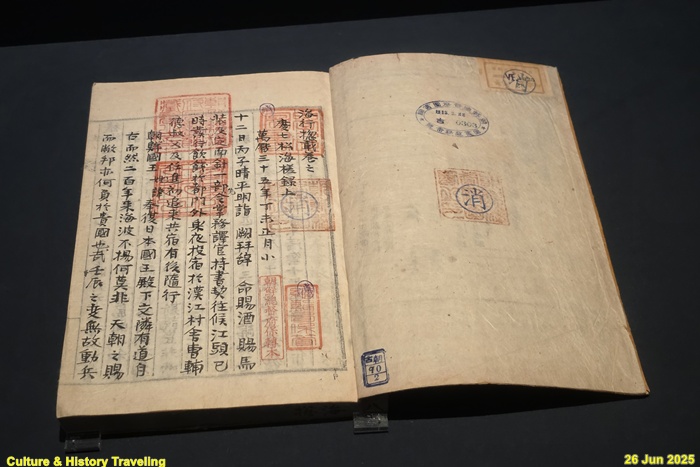 海行摠載卷之
慶七松海槎錄上
萬曆三十五年丁未正月小
十二日丙子晴平明詣 闕拜辭 命賜酒 賜馬
掌務譯官持書契往候江頭已
時 行飮餞於都門外 夜投宿於漢江村舍曺輔
追來共宿有後隨行
朝鮮國王 奉復日本國王殿下交隣有道自
古而然二百年來海波不揚何莫非 天朝之賜
而敝邦亦何負於貴國也哉壬辰之變無故動兵
消
消
古朝
90
2
Culture & History Traveling
26 Jun 2025